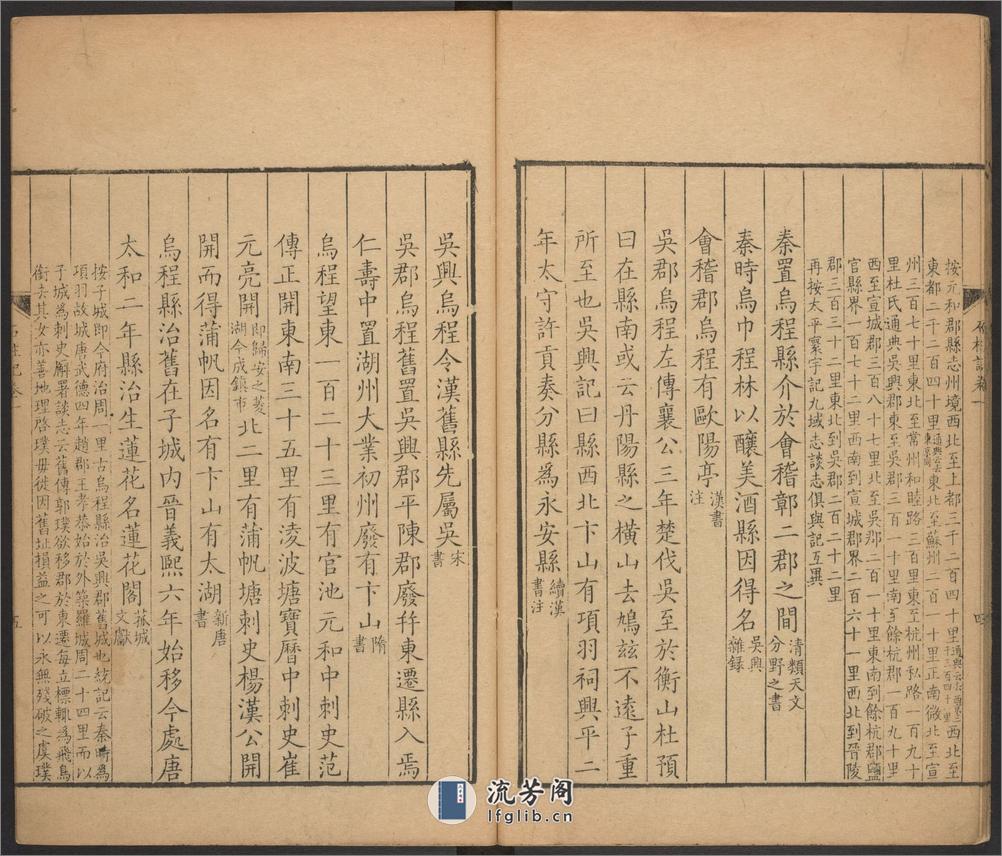 按元和郡縣志州境西北至上都三千二百四十里西北至
東都二千二百四十里東北至蘇州二百一十里正南微北至宣
州三百七十里東北至常州和睦路三百里東至杭州私路一百九十
里杜氏通典吳興郡東至吳郡三百一十里南至餘杭郡一百九十里
西至宣城郡三百八十七里北至吳郡二百一十里東南到餘杭郡鹽
官縣界一百七十二里西南到宣城郡界二百六十一里西北到晉陵
郡三百三十二里東北到吳郡二百二十二里
再按太平寰宇記九域志談志俱與記互異
秦置烏程縣介於會稽鄣二郡之間清類天文分野之書
秦時烏巾程林以釀美酒縣因得名吳興雜録
會稽郡烏程有歐陽亭漢書注
吳郡烏程左傳襄公三年楚伐吳至於衡山杜預
曰在縣南或云丹陽縣之橫山去鳩兹不遠子重
所至也吳興記曰縣西北卞山有項羽祠興平二
年太守許貢奏分縣爲永安縣續漢書注
吳興烏程令漢舊縣先屬吳宋書
吳郡烏程舊置吳興郡平陳郡廢幷東遷縣入焉
仁壽中置湖州大業初州廢有卞山隋書
烏程望東一百二十三里有官池元和中刺史范
傳正開東南三十五里有淩波塘寶曆中刺史崔
元亮開即歸安之菱湖今成鎮市北二里有蒲帆塘刺史楊漢公開
開而得蒲帆因名有卞山有太湖新唐書
烏程縣治舊在子城内晉義熙六年始移今處唐
太和二年縣治生蓮花名蓮花閣菰城文獻
按子城即今府治周一里古烏程縣治吳興郡舊城也統記云秦時爲
項羽故城唐武德四年趙郡王孝恭始於外築羅城周二十四里而以
子城爲刺史廨署談志云舊傳郭璞欲移郡於東遷每立標輒爲飛鳥
銜去其女亦善地理啓璞毋徙因舊址損益之可以永無殘破之虞璞
五
流芳阁
lfglib.cn